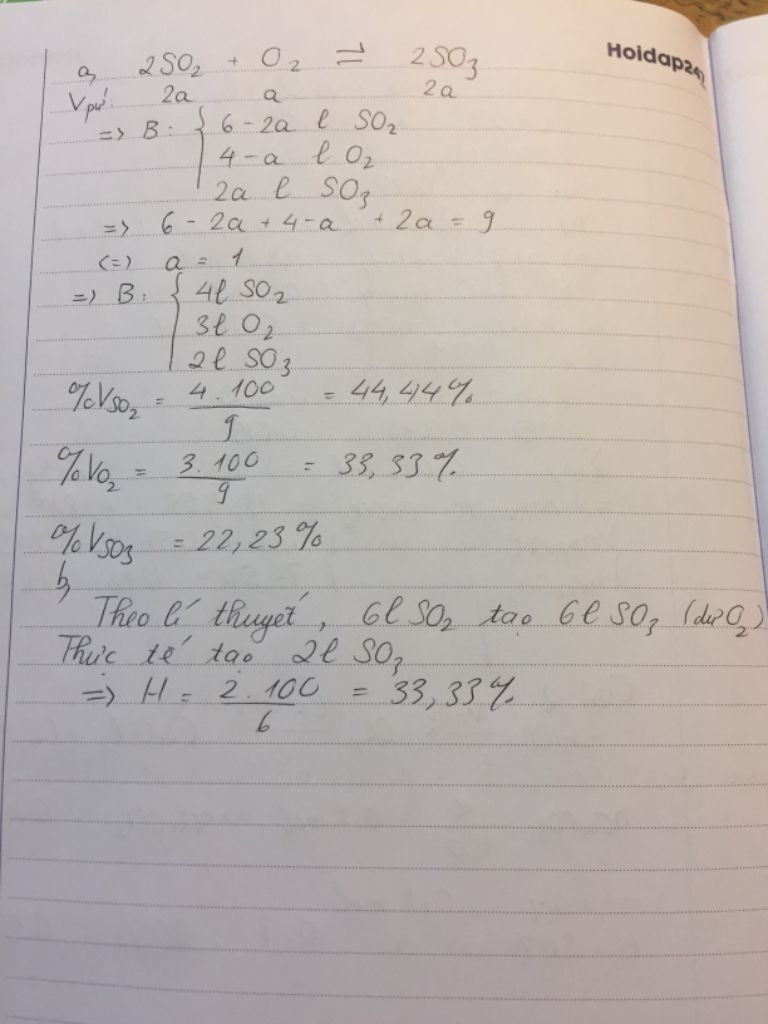 Hoidap247
a, 2SO₂ + O₂ ⇌ 2SO₃
Vpứ: 2a a 2a
=> B: { 6 - 2a l SO₂
4 - a l O₂
2a l SO₃
=> 6 - 2a + 4 - a + 2a = 9
<=> a = 1
=> B: { 4l SO₂
3l O₂
2l SO₃
%V_SO₂ = 4.100/9 = 44,44%
%V_O₂ = 3.100/9 = 33,33%
%V_SO₃ = 22,23%
b,
Theo lí thuyết, 6l SO₂ tạo 6l SO₃ (dư O₂)
Thực tế tạo 2l SO₃
=> H = 2.100/6 = 33,33%